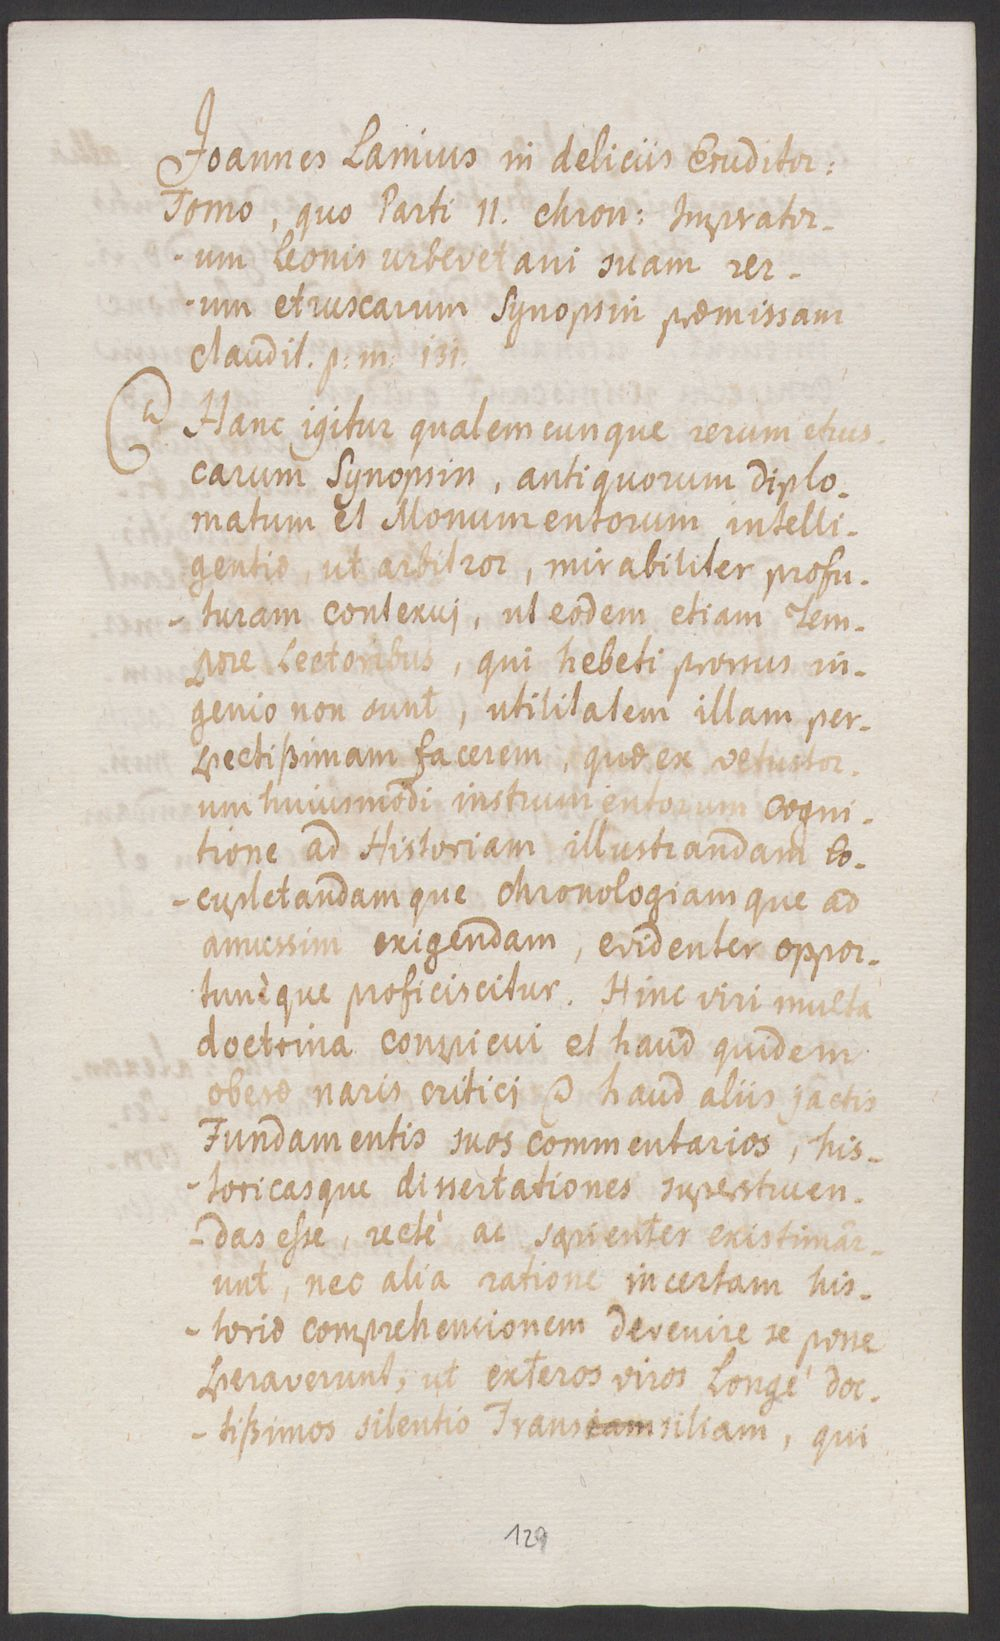 Joannes Lamius in deliciis Eruditor:
Tomo, quo Parti II. chron: Imperator-
-um Leonis urbevetani suam rer-
-um etruscarum Synopsin præmissam
claudit. p: m: 131.
Hanc igitur qualemcunque rerum etrus-
carum Synopsin, antiquorum diplo-
matum et Monumentorum intelli-
gentiæ, ut arbitror, mirabiliter profu-
-turam contexuj, ut eodem etiam Tem-
pore Lectoribus, qui hebeti prorsus in-
genio non sunt, utilitatem illam per-
spectißimam facerem, quæ ex vetustor-
um huiusmodi instrumentorum cogni-
tione ad Historiam illustrandam lo-
-cupletandamque chronologiamque ad
amussim exigendam, evidenter oppor-
tunèque proficiscitur. Hinc viri multa
doctrina conspicui et haud quidem
obesæ naris critici haud aliis jactis
Fundamentis suos commentarios, his-
-toricasque dissertationes superstruen-
-das eße, rectè ac sapienter existimâr-
unt, nec alia ratione in certam his-
-toriæ comprehensionem devenire se posse
speraverunt; ut exteros viros Longè doc-
-tißimos silentio Transiliam, qui
129